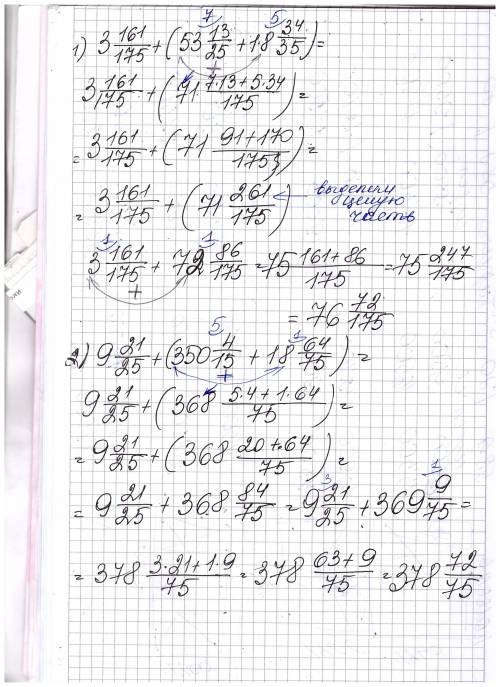 7 5
1) 3 161/175 + (53 13/25 + 18 34/35) =
3 161/175 + (71 (7·13+5·34)/175) =
= 3 161/175 + (71 (91+170)/175) =
= 3 161/175 + (71 261/175) выделили целую часть
1 1
3 161/175 + 72 86/175 = 75 (161+86)/175 = 75 247/175
= 76 72/175
5 1
2) 9 21/25 + (350 4/15 + 18 64/75) =
9 21/25 + (368 (5·4+1·64)/75) =
= 9 21/25 + (368 (20+64)/75) =
3 1
= 9 21/25 + 368 84/75 = 9 21/25 + 369 9/75 =
= 378 (3·21+1·9)/75 = 378 (63+9)/75 = 378 72/75